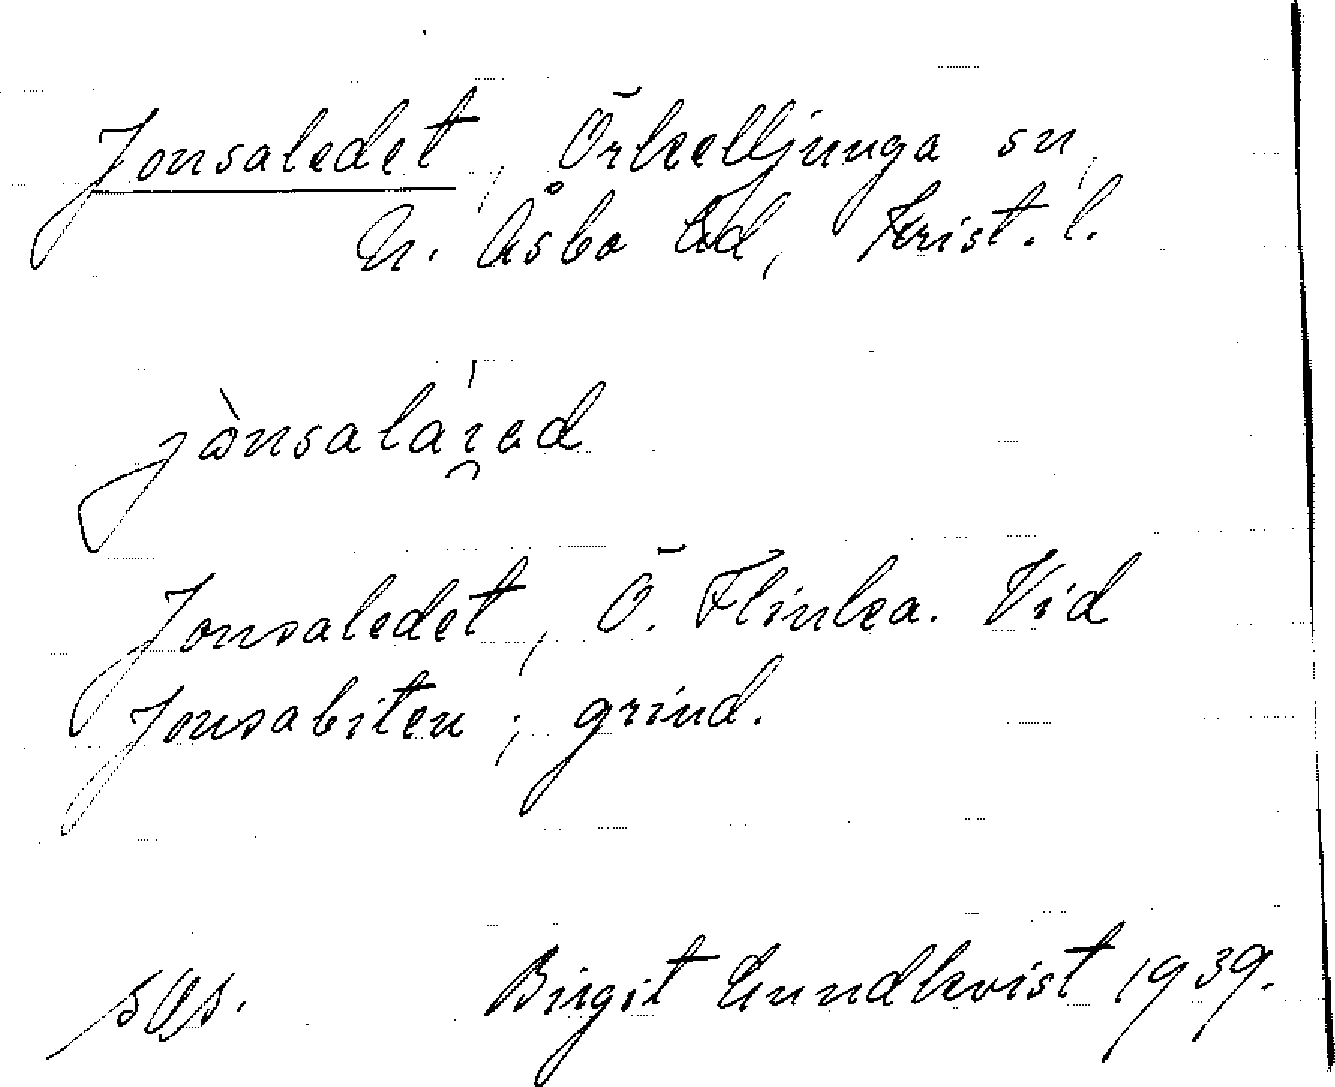 Jonsaledet, Örkelljunga sn,
N. Åsbo hd, Krist. l.
jònsalái̯ad
Jonsaledet, Ö. Flinka. Vid
Jonsabiten; grind.
Birgit Lundkvist 1939.